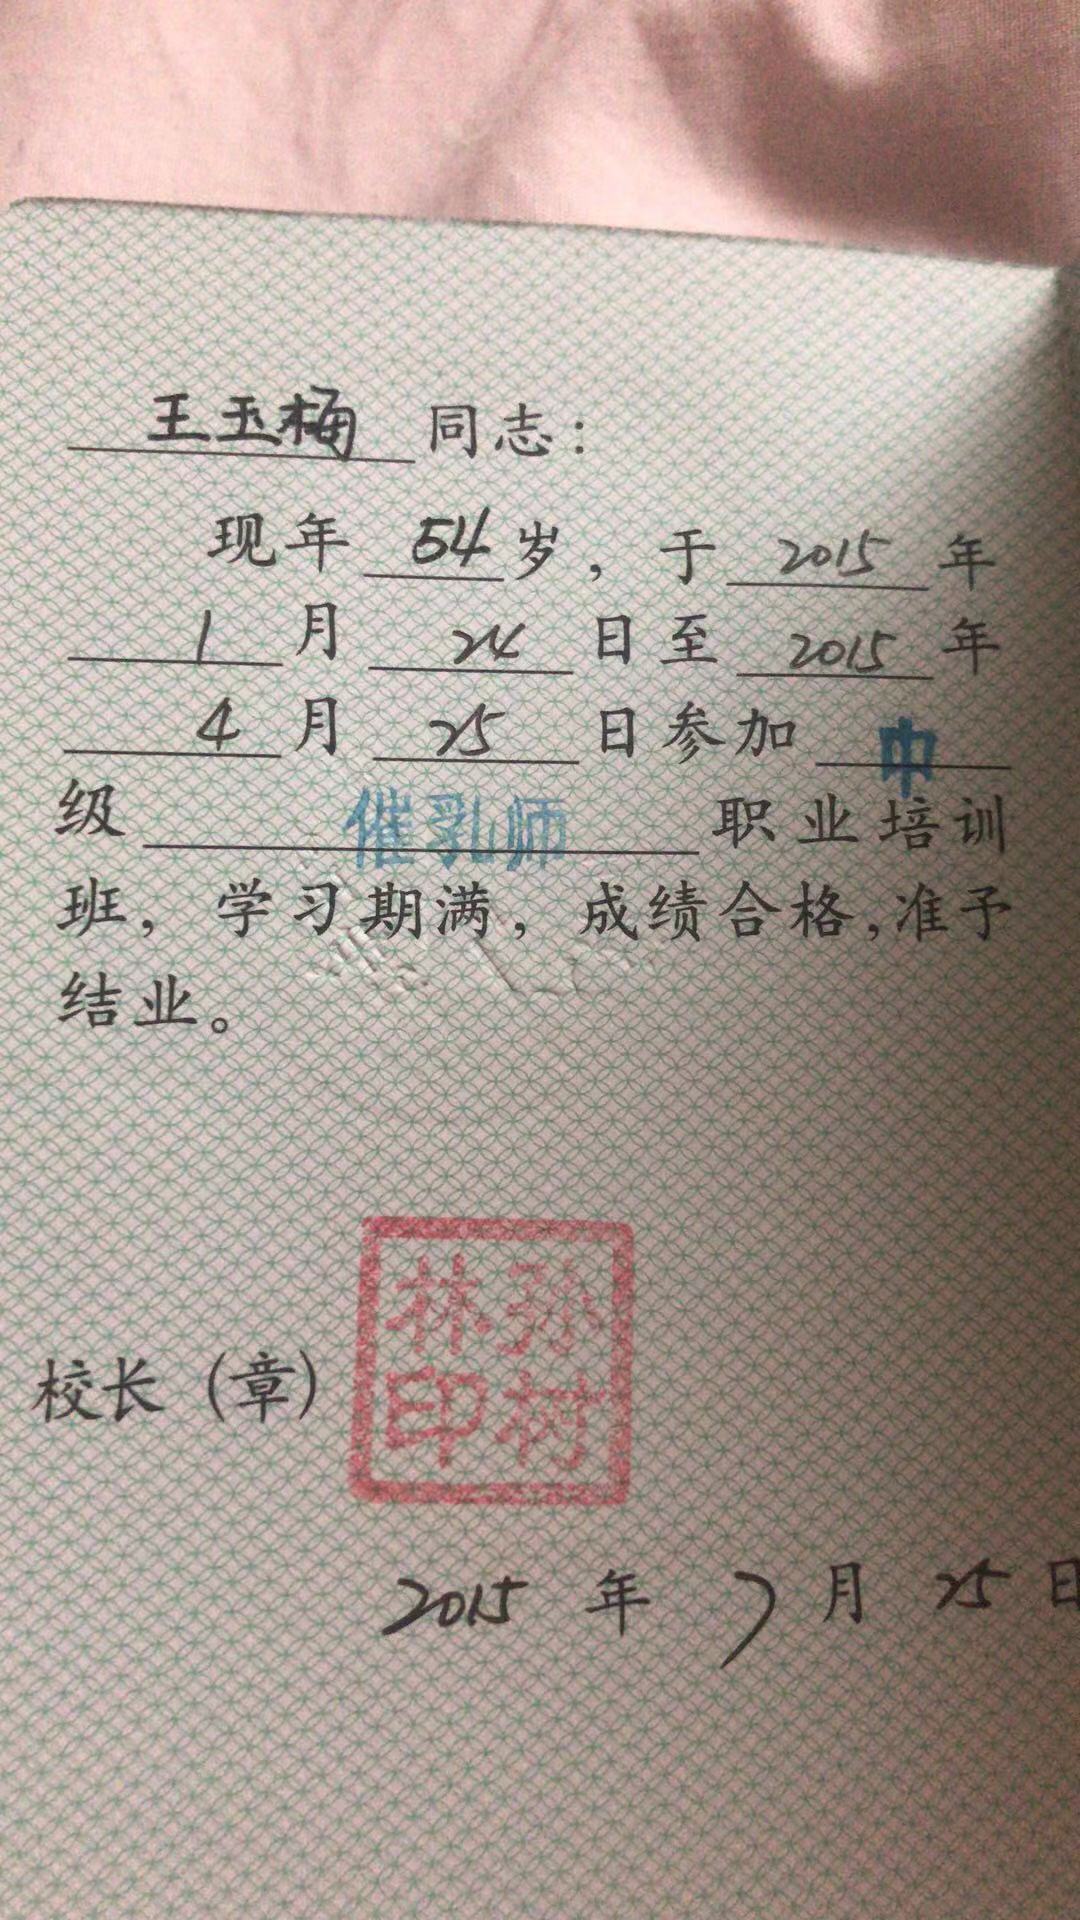 王玉梅 同志：
现年 54 岁，于 2015 年
1 月 24 日至 2015 年
4 月 25 日参加 中
级 催乳师 职业培训
班，学习期满，成绩合格,准予
结业。
林孙
印树
校长（章）
2015 年 7 月 25 日